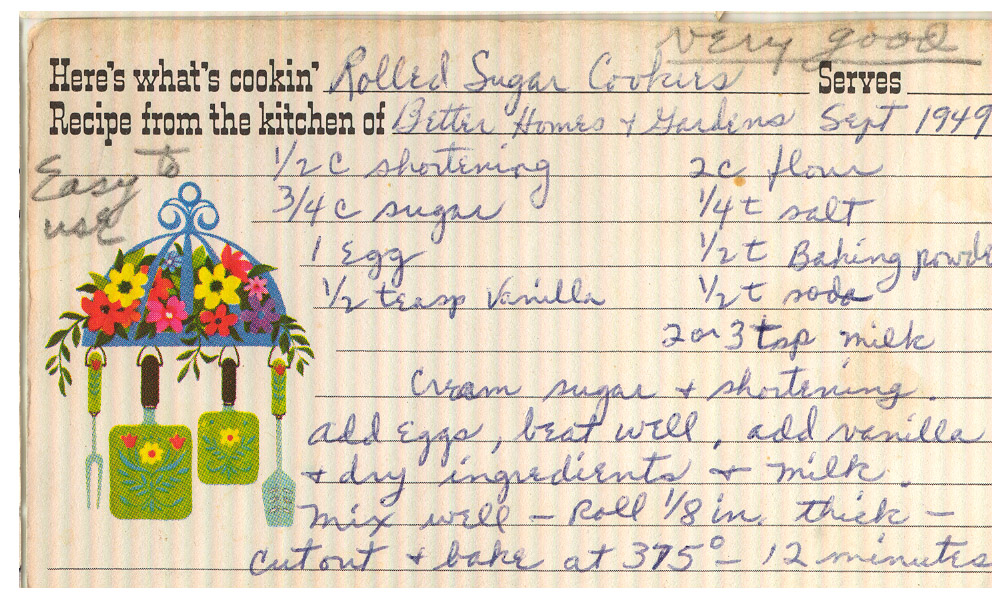 very good
Here's what's cookin' Rolled Sugar Cookies Serves
Recipe from the kitchen of Better Homes & Gardens Sept 1949
Easy to use
1/2 c shortening 2 c flour
3/4 c sugar 1/4 t salt
1 Egg 1/2 t Baking powde
1/2 teasp Vanilla 1/2 t soda
2 or 3 tsp milk
Cream sugar + shortening.
add eggs, beat well, add vanilla
+ dry ingredients + milk.
Mix well - Roll 1/8 in. thick -
cut out + bake at 375° - 12 minutes